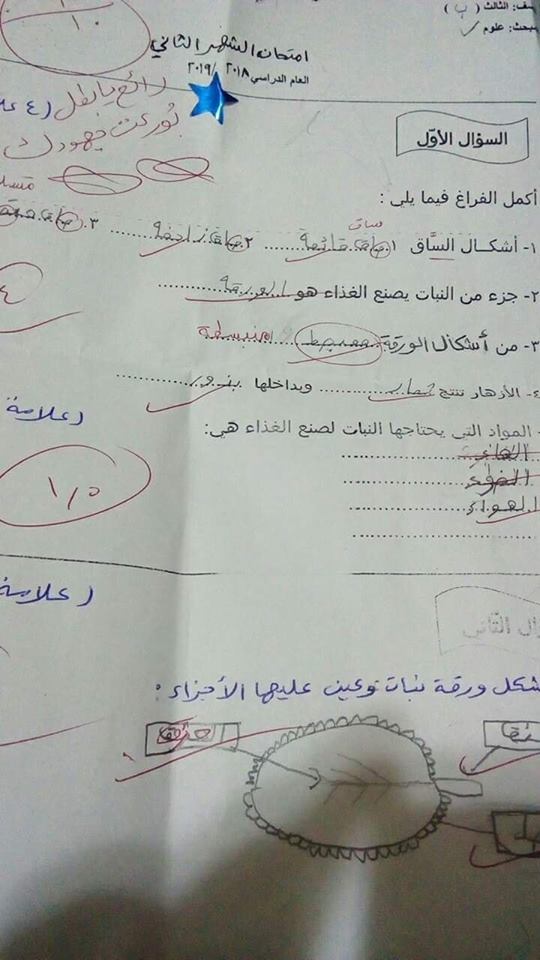 الصف: الثالث ( ب )
المبحث: علوم
امتحان الشهر الثاني
العام الدراسي ٢٠١٨ / ٢٠١٩
رائع يا بطل
بوركت جهودك
السؤال الأوّل
أكمل الفراغ فيما يلي :
ساق
١- أشكال السَّاق ١. ساق قائمة ٢. ساق زاحفة ٣.
٢- جزء من النبات يصنع الغذاء هو الورقة
٣- من أشكال الورقة منبسطة
٤- الأزهار تنتج ثمار وبداخلها بذور
المواد التي يحتاجها النبات لصنع الغذاء هي:
الماء
الضوء
الهواء
علامة
علامة
السؤال الثّاني
شكل ورقة نبات وعين عليها الأجزاء :
العرق